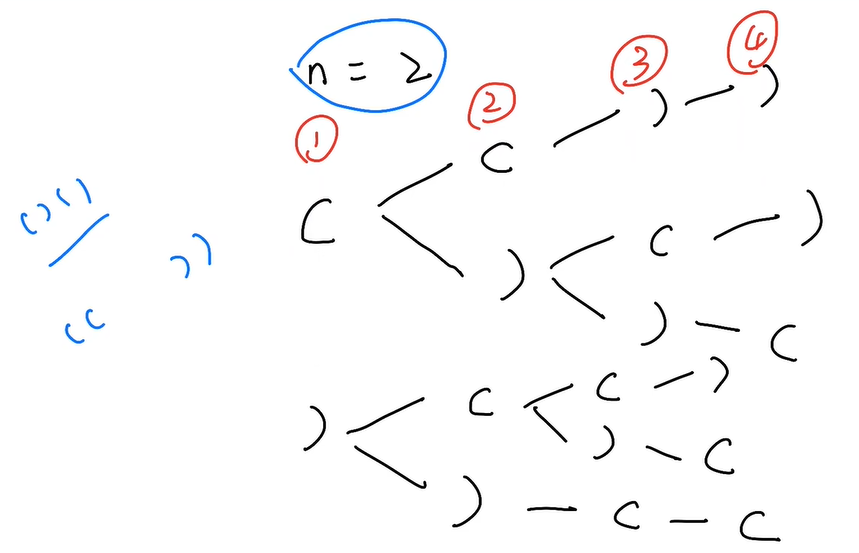 n = 2
① ② ③ ④
( ( ) )
( ) ( )
) (
) ( ( )
) (
) ( (
()()
))
((